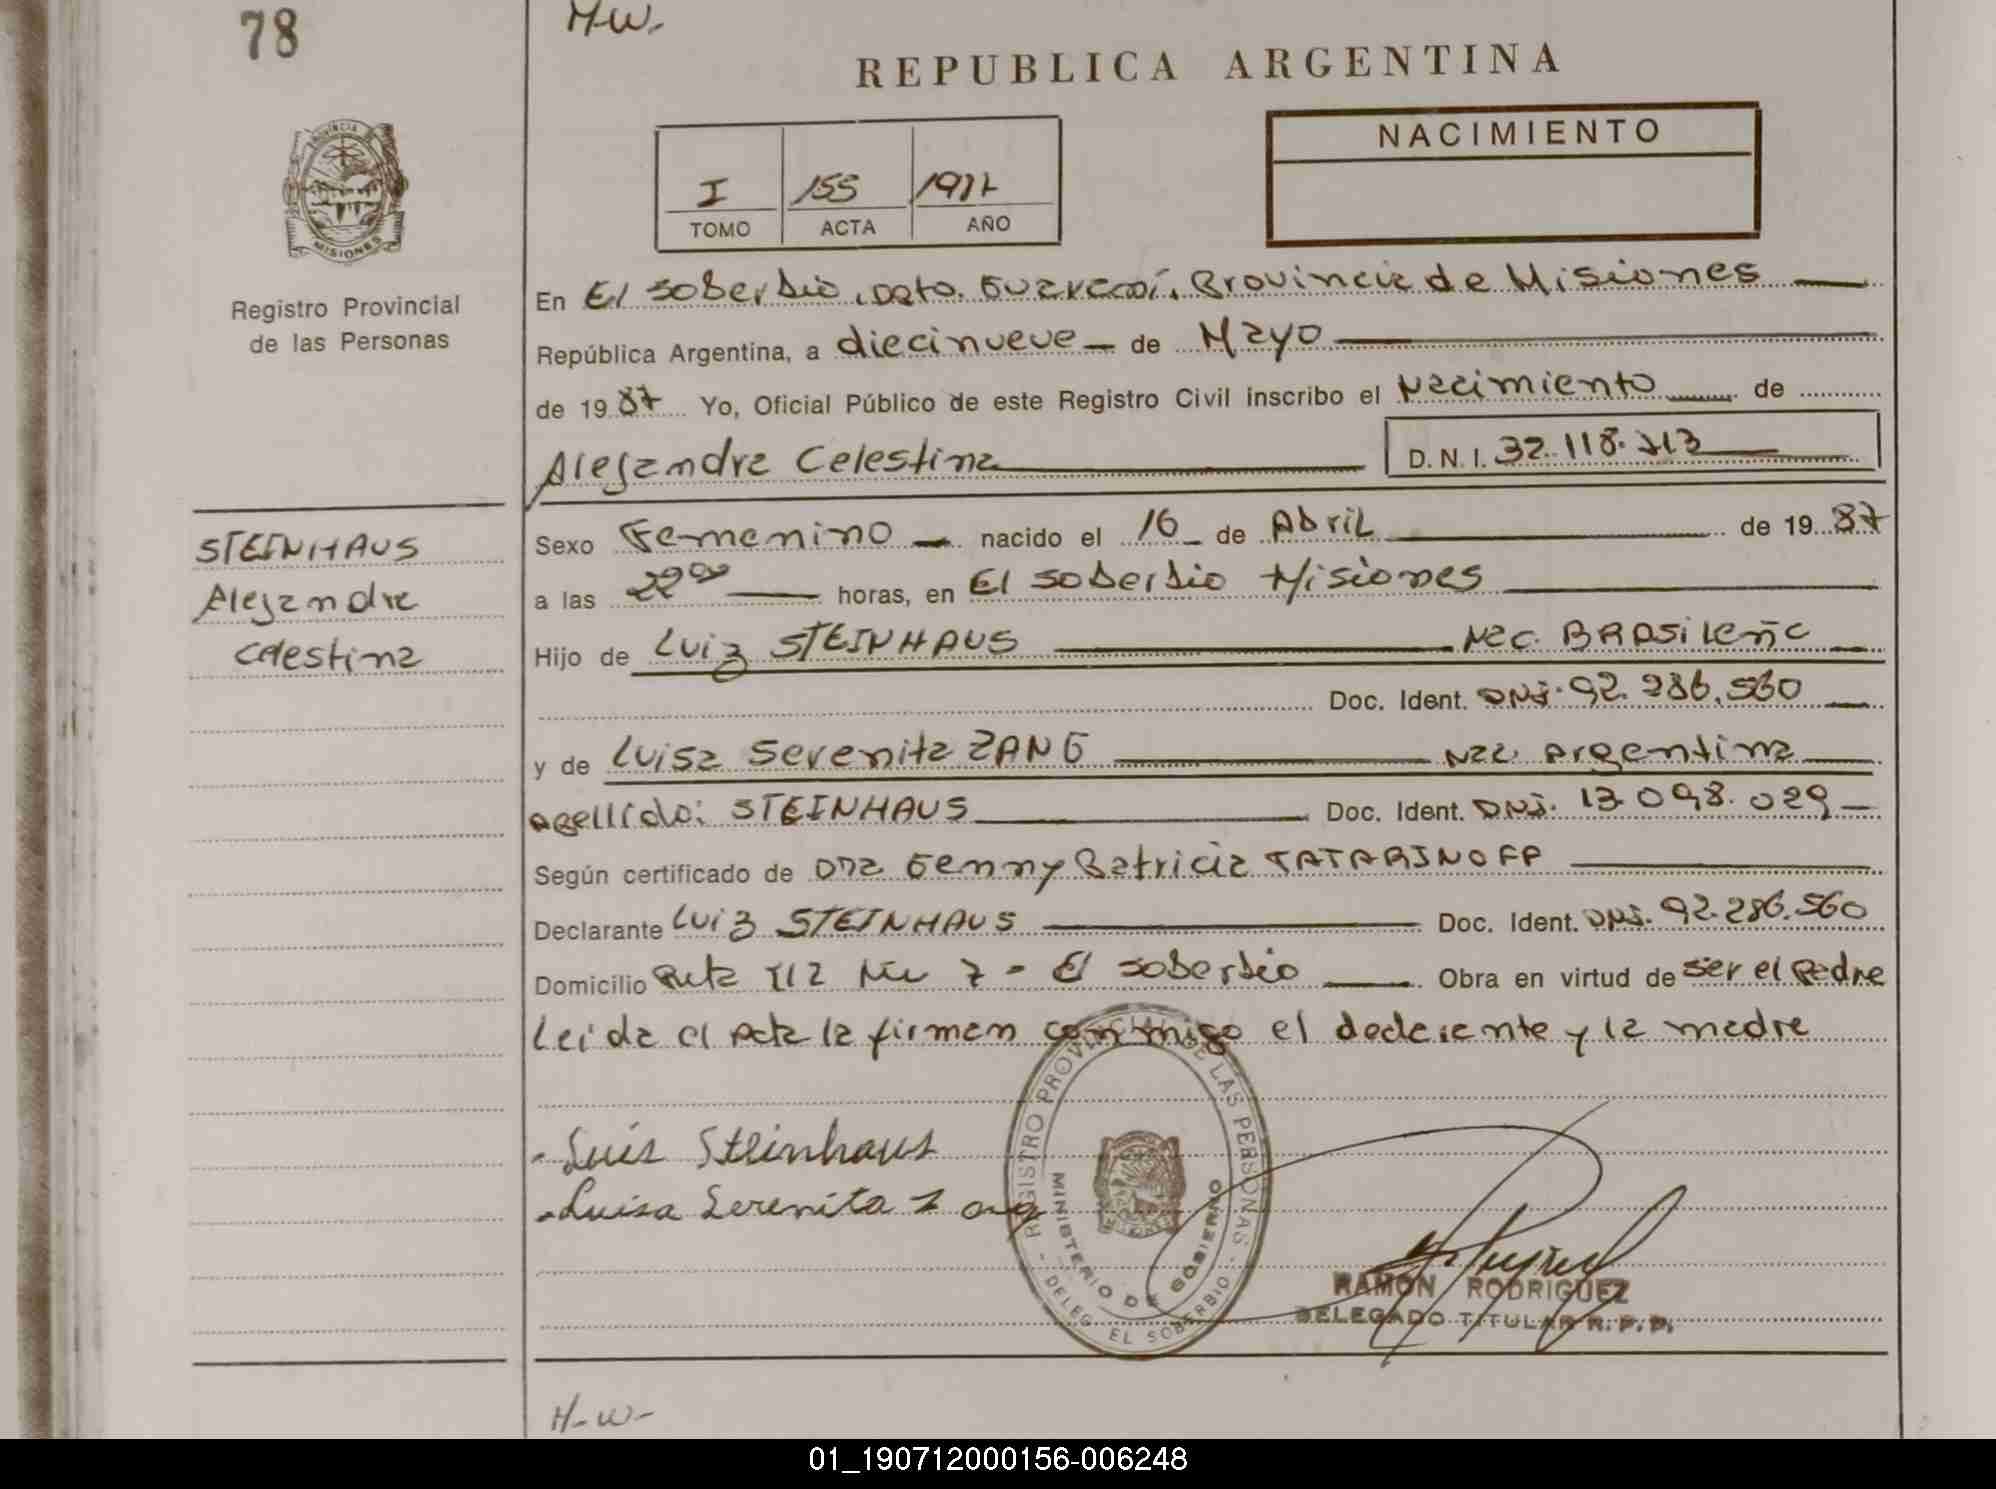 78
H-W.
REPUBLICA ARGENTINA
PROVINCIA
MISIONES
Registro Provincial
de las Personas
NACIMIENTO
I 155
TOMO ACTA AÑO
En El Soberbio, Dpto. Guaraní, Provincia de Misiones
República Argentina, a diecinueve de Mayo
de 1987 Yo, Oficial Público de este Registro Civil inscribo el Nacimiento de
Alejandra Celestina D.N.I. 32.118.713
STEINHAUS
Alejandra
Celestina
Sexo Femenino nacido el 16 de Abril de 1987
a las 22 horas, en El Soberbio Misiones
Hijo de Luiz STEINHAUS Nac. BRASileña
Doc. Ident. DNI. 92.286.560
y de Luisa Serenita ZANG Nac. Argentina
Apellido: STEINHAUS Doc. Ident. DNI. 13.098.029
Según certificado de Dra Genny Patricia TATARINOFF
Declarante Luiz STEINHAUS Doc. Ident. DNI. 92.286.560
Domicilio Ruta 212 Km 7 - El Soberbio Obra en virtud de ser el padre
Leida el Acta la firman conmigo el declarante y la madre
Luis Steinhaus
Luisa Serenita Zang
REGISTRO PROVINCIAL DE LAS PERSONAS
MINISTERIO DE GOBIERNO
DELEG EL SOBERBIO
RAMON RODRIGUEZ
DELEGADO TITULAR R.P.P.
H-W-
01_190712000156-006248